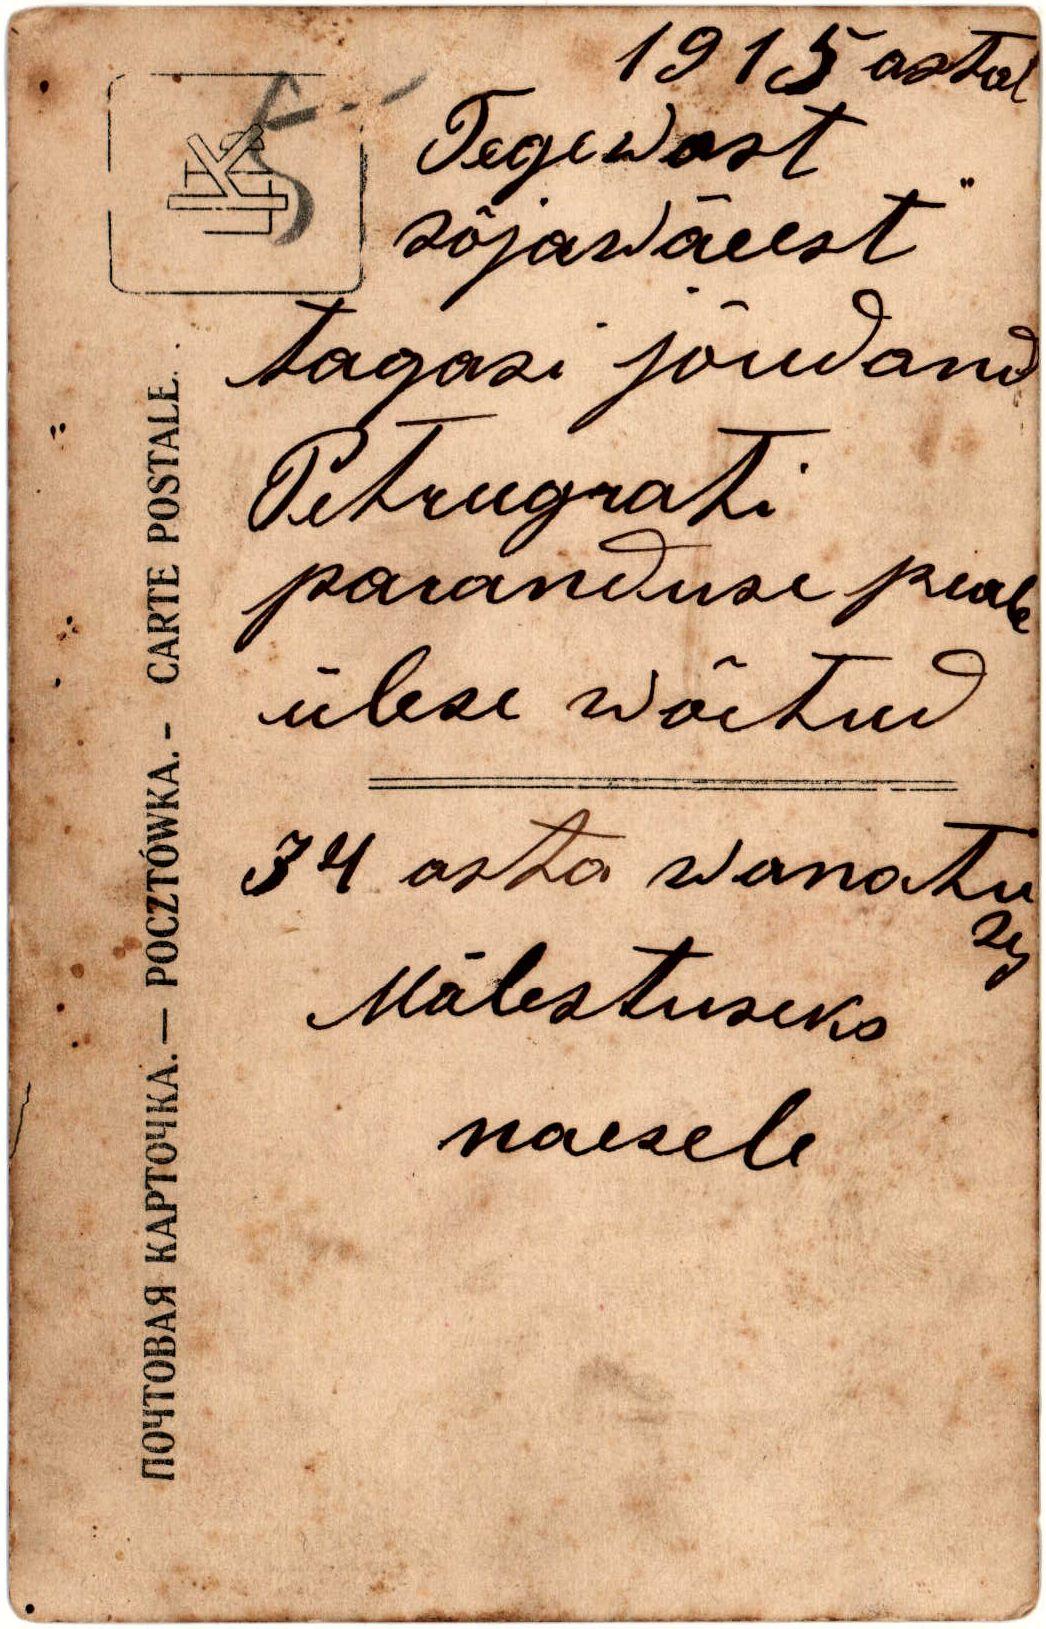 1915 astal
Tegewast
sõjawäeest
tagasi jõudand
Petrugrati
paranduse peale
ülese wõetud
34 asta wanatu
ses
Mälestuseks
naesele
ПОЧТОВАЯ КАРТОЧКА.— POCZTÓWKA.- CARTE POSTALE.
5